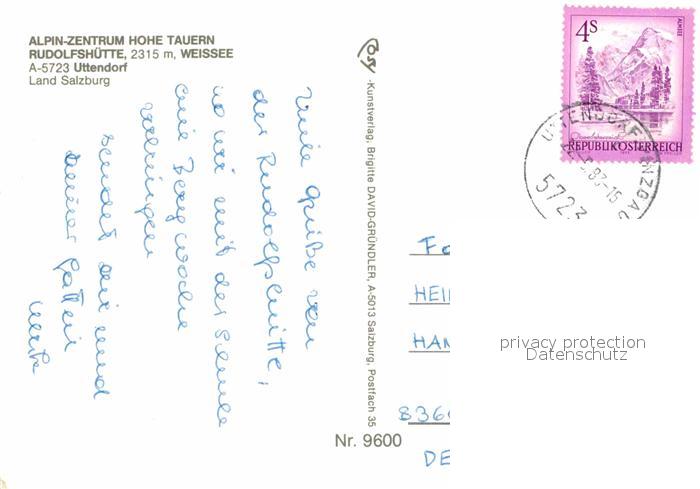 ALPIN-ZENTRUM HOHE TAUERN
RUDOLFSHÜTTE, 2315 m, WEISSEE
A-5723 Uttendorf
Land Salzburg
Viele Grüße von
der Rudolfshütte,
wo wir mit der Schule
eine Bergwoche
verbringen
sendet dir und
deiner Gattin
Cosy -Kunstverlag, Brigitte DAVID-GRÜNDLER, A-5013 Salzburg, Postfach 35
Nr. 9600
4S
ALMSEE
REPUBLIK ÖSTERREICH
UTTENDORF
83-15
5723
Fa
HEI
HAN
836
DE
privacy protection
Datenschutz